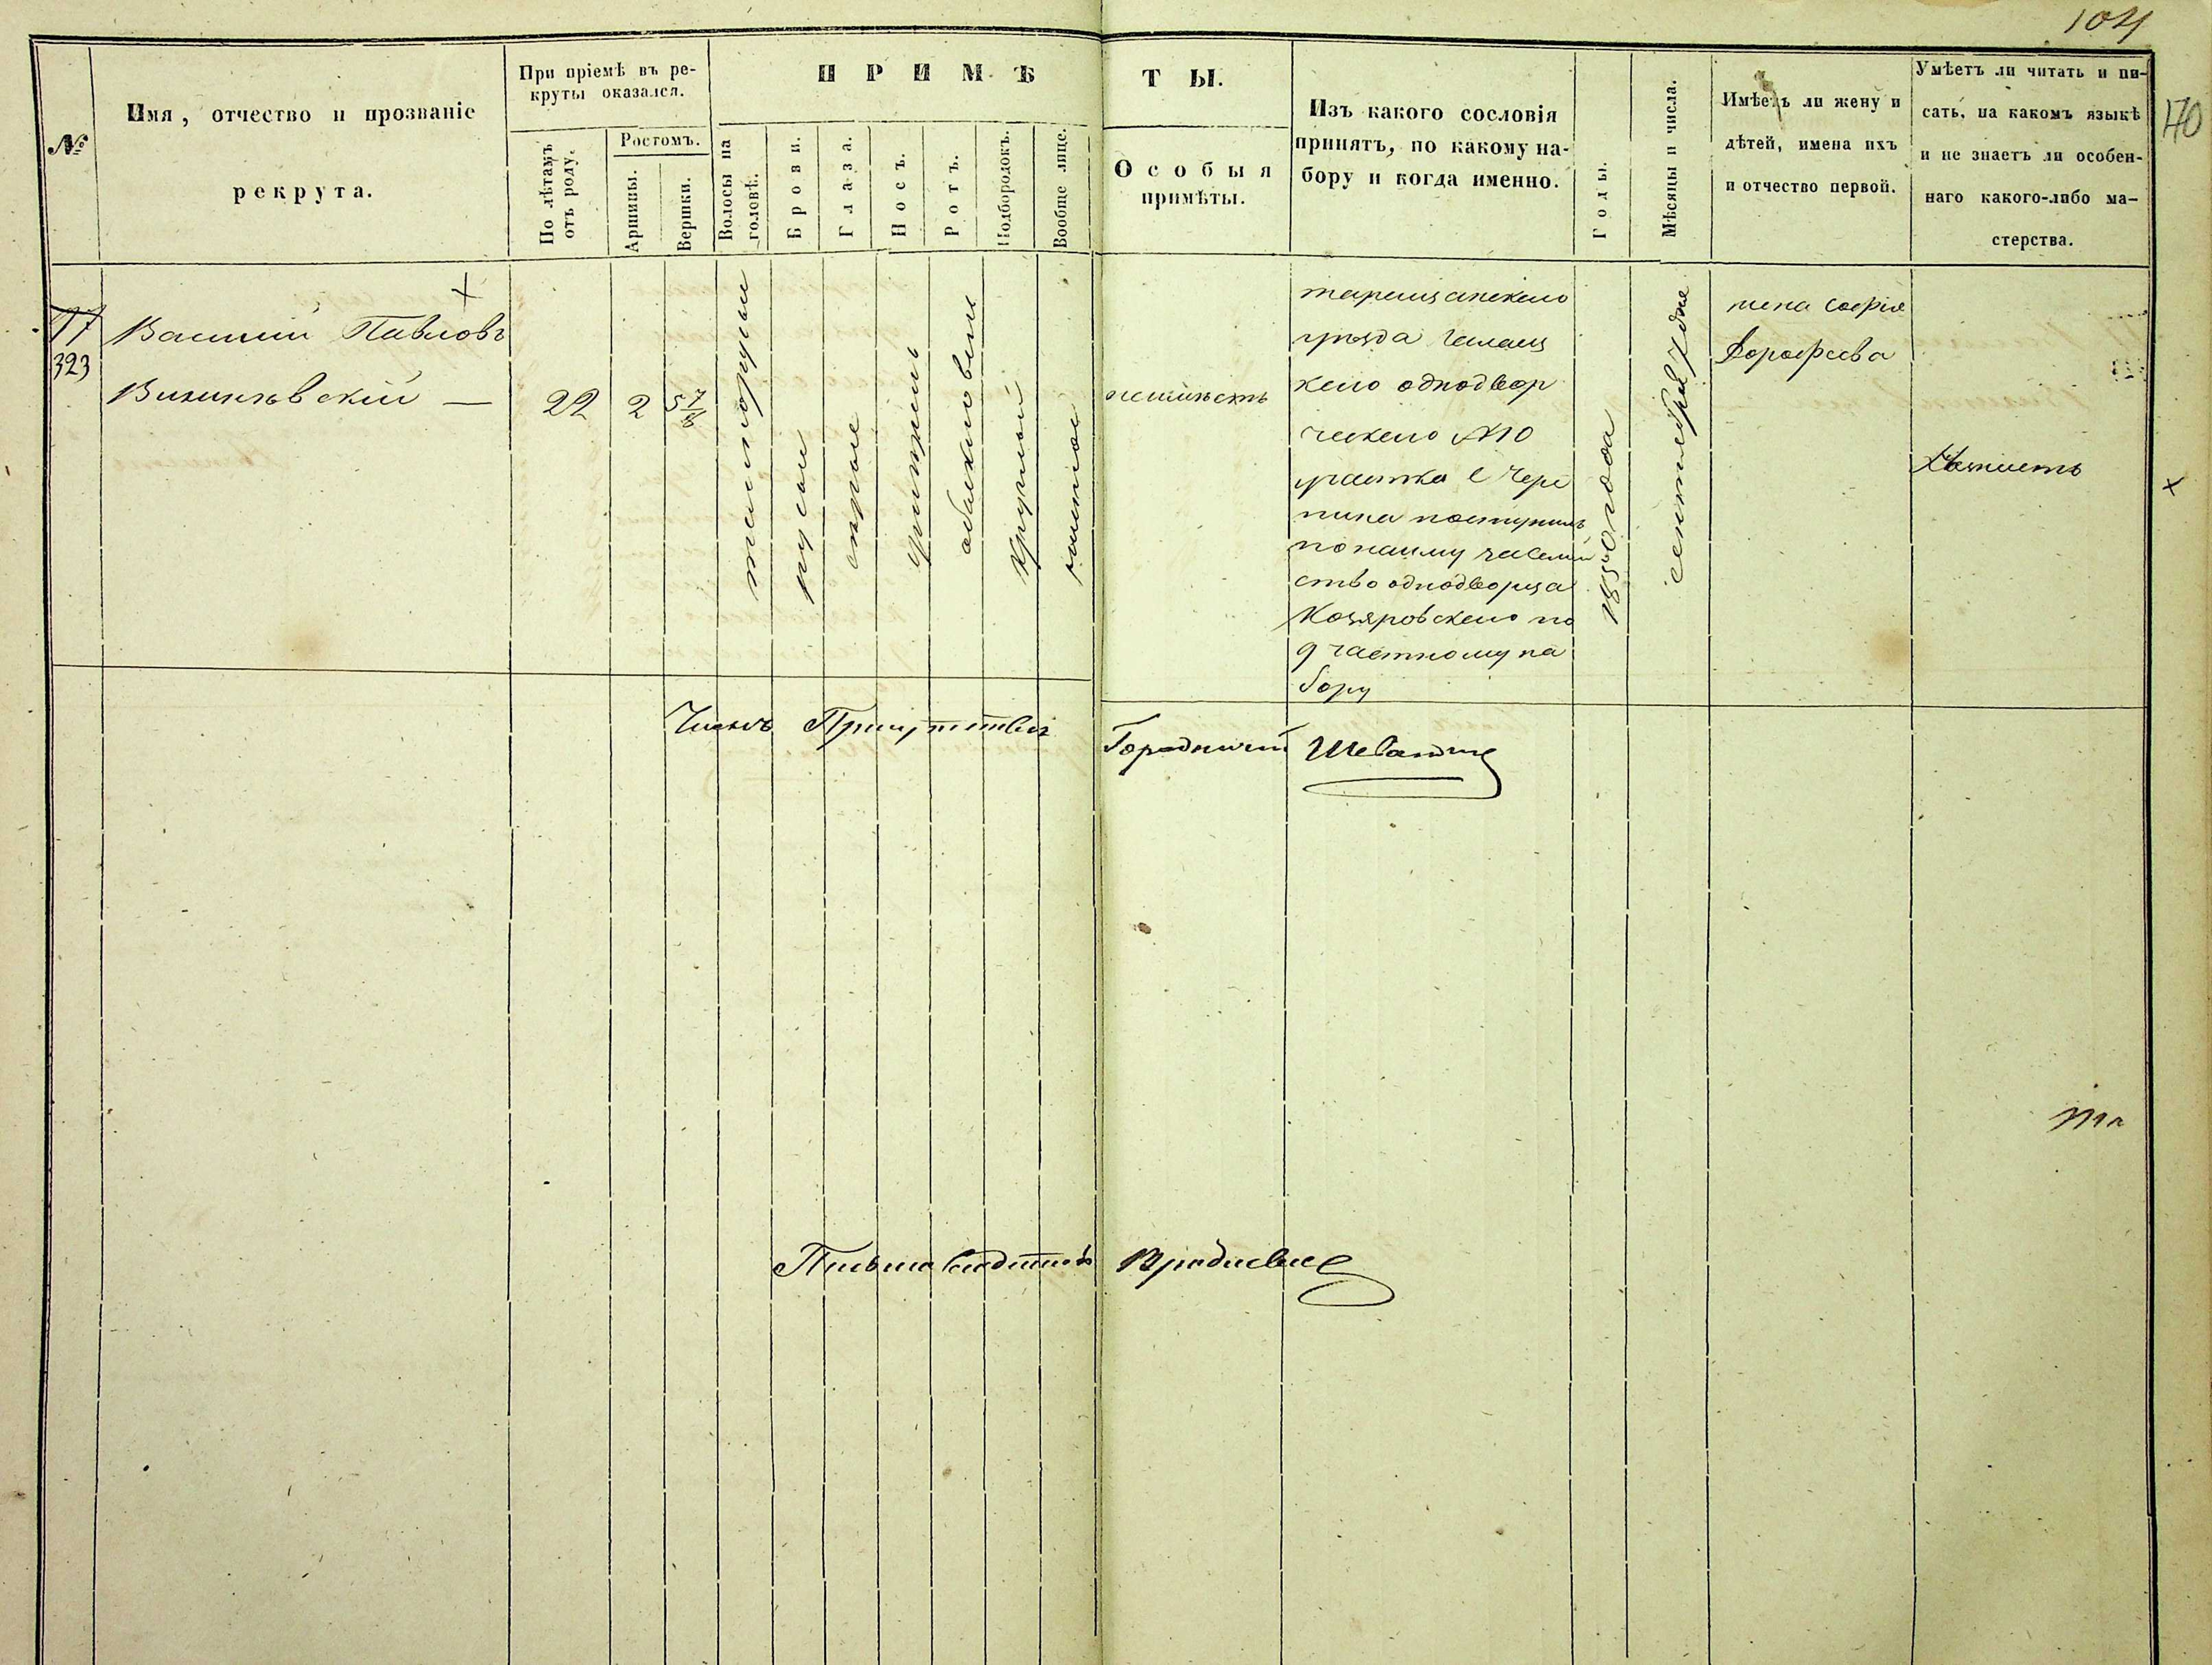 104
140
№
Имя, отчество и прозваніе
рекрута.
При пріемѣ въ ре-
круты оказался.
По лѣтамъ
отъ роду.
Ростомъ.
Аршины.
Вершки.
ПРИМѢ
Волосы на
головѣ.
Брови.
Глаза.
Носъ.
Ротъ.
Подбородокъ.
Вообще лице.
ТЫ.
Особыя
примѣты.
Изъ какого сословія
принятъ, по какому на-
бору и когда именно.
Годы.
Мѣсяцы и числа.
Имѣетъ ли жену и
дѣтей, имена ихъ
и отчество первой.
Умѣетъ ли читать и пи-
сать, на какомъ языкѣ
и не знаетъ ли особен-
наго какого-либо ма-
стерства.
323
Василій Павловъ
22
2
5 7/8
русыи
серые
обыкновени
круглый
чистое
таращанскаго
уезда
каго одновор
ческаго №10
участка с Чере
пина поступилъ
по найму за семей
ство однодворца
Козяровскаго по
9 частному на
бору
1850 года
сентября 7 дня
жена Софія
Дорофеева
Членъ Присутствия
Городничий